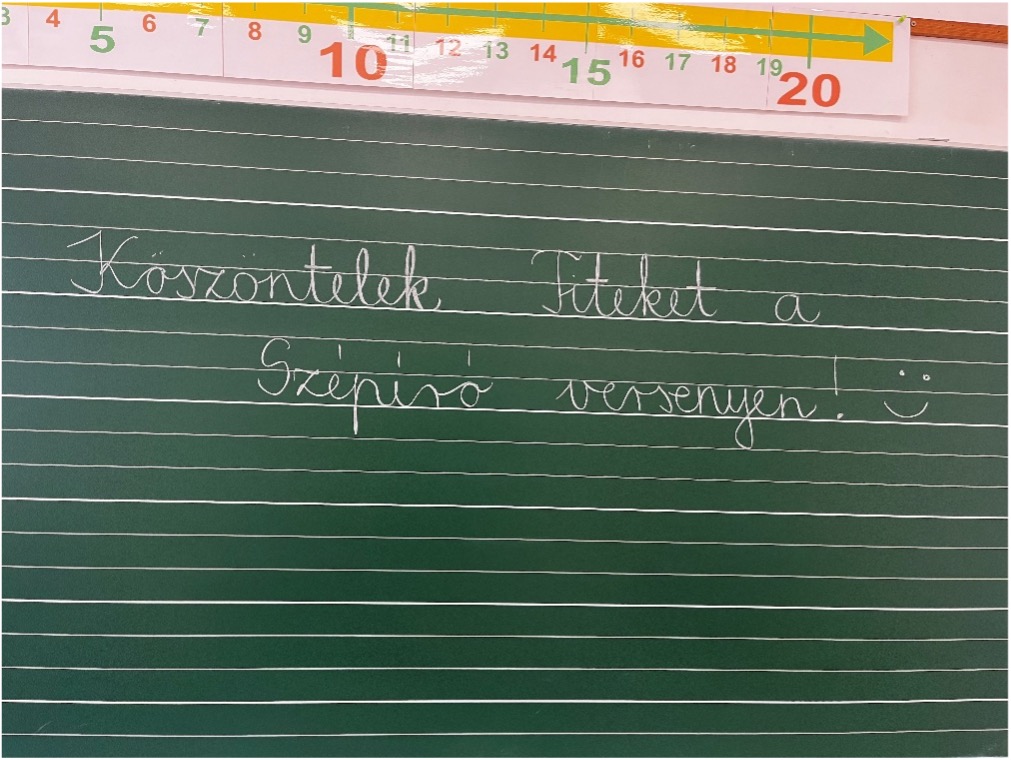 3 4 5 6 7 8 9 10 11 12 13 14 15 16 17 18 19 20
Köszöntelek Titeket a
Szépíró versenyen! :)